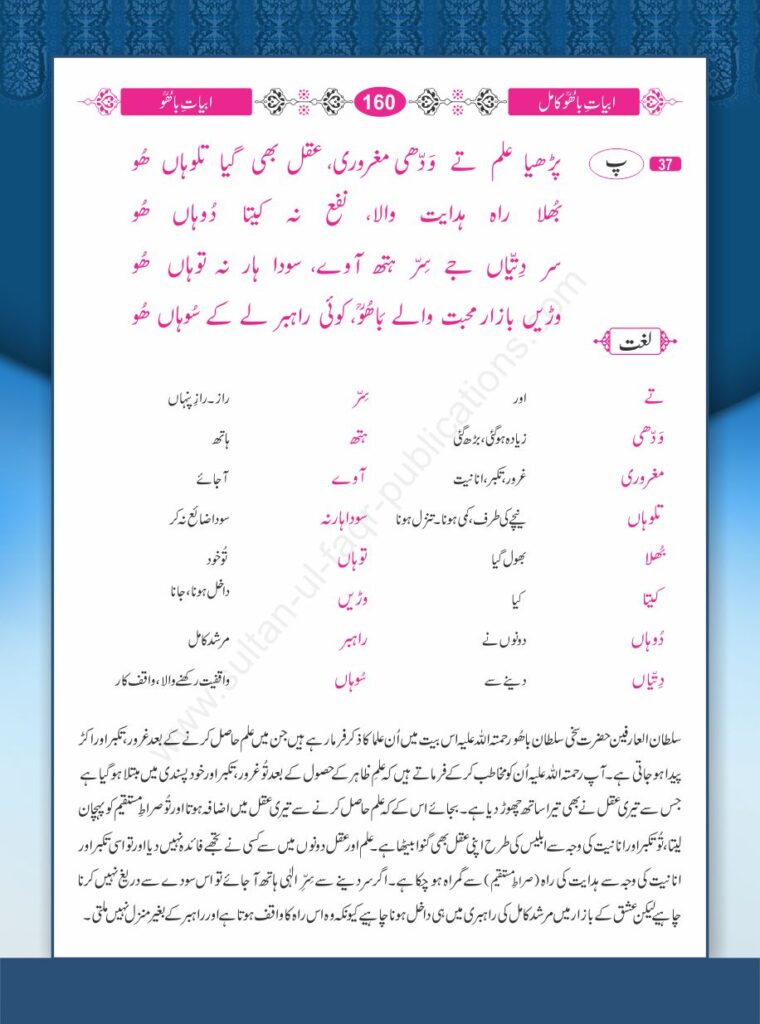 ابیاتِ باھُوؒ کامل 160 ابیاتِ باھُوؒ
37 پ
پڑھیا علم تے وَدّھی مغروری، عقل بھی گیا تلوہاں ھُو
بُھلا راہ ہدایت والا، نفع نہ کیتا دُوہاں ھُو
سر دِتیّاں جے سِرّ ہتھ آوے، سودا ہار نہ توہاں ھُو
وڑیں بازار محبت والے باھُوؒ، کوئی راہبر لے کے سُوہاں ھُو
لغت
تے اور سِرّ راز۔ رازِ پنہاں
وَدّھی زیادہ ہوگئی، بڑھ گئی ہتھ ہاتھ
مغروری غرور، تکبر، انانیت آوے آجائے
تلوہاں نیچے کی طرف، کمی ہونا۔ تنزل ہونا سودا ہار نہ سودا ضائع نہ کر
بُھلا بھول گیا توہاں تُو خود
کیتا کیا وڑیں داخل ہونا، جانا
دُوہاں دونوں نے راہبر مرشد کامل
دِتیّاں دینے سے سُوہاں واقفیت رکھنے والا، واقف کار
سلطان العارفین حضرت سخی سلطان باھُو رحمتہ اللہ علیہ اس بیت میں اُن علما کا ذکر فرما رہے ہیں جن میں علم حاصل کرنے کے بعد غرور، تکبر اور اکڑ
پیدا ہو جاتی ہے۔ آپ رحمتہ اللہ علیہ اُن کو مخاطب کر کے فرماتے ہیں کہ علمِ ظاہر کے حصول کے بعد تُو غرور، تکبر اور خود پسندی میں مبتلا ہو گیا ہے
جس سے تیری عقل نے بھی تیرا ساتھ چھوڑ دیا ہے۔ بجائے اس کے کہ علم حاصل کرنے سے تیری عقل میں اضافہ ہوتا اور تُو صراطِ مستقیم کو پہچان
لیتا، تُو تکبر اور انانیت کی وجہ سے ابلیس کی طرح اپنی عقل بھی گنوا بیٹھا ہے۔ علم اور عقل دونوں میں سے کسی نے تجھے فائدہ نہیں دیا اور تو اسی تکبر اور
انانیت کی وجہ سے ہدایت کی راہ (صراطِ مستقیم) سے گمراہ ہو چکا ہے۔ اگر سر دینے سے سِرِّ الٰہی ہاتھ آجائے تو اس سودے سے دریغ نہیں کرنا
چاہیے لیکن عشق کے بازار میں مرشد کامل کی راہبری میں ہی داخل ہونا چاہیے کیونکہ وہ اس راہ کا واقف ہوتا ہے اور راہبر کے بغیر منزل نہیں ملتی۔
www.sultan-ul-faqr-publications.com